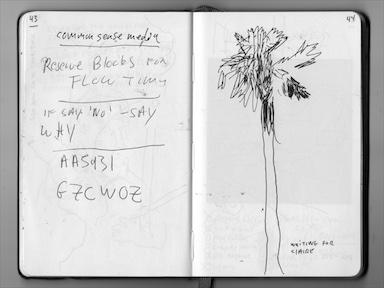 43
common sense media
Reserve Blocks for
Flow Time
if say 'No' - say
why
AA5931
GZCWOZ
44
waiting for
Claire